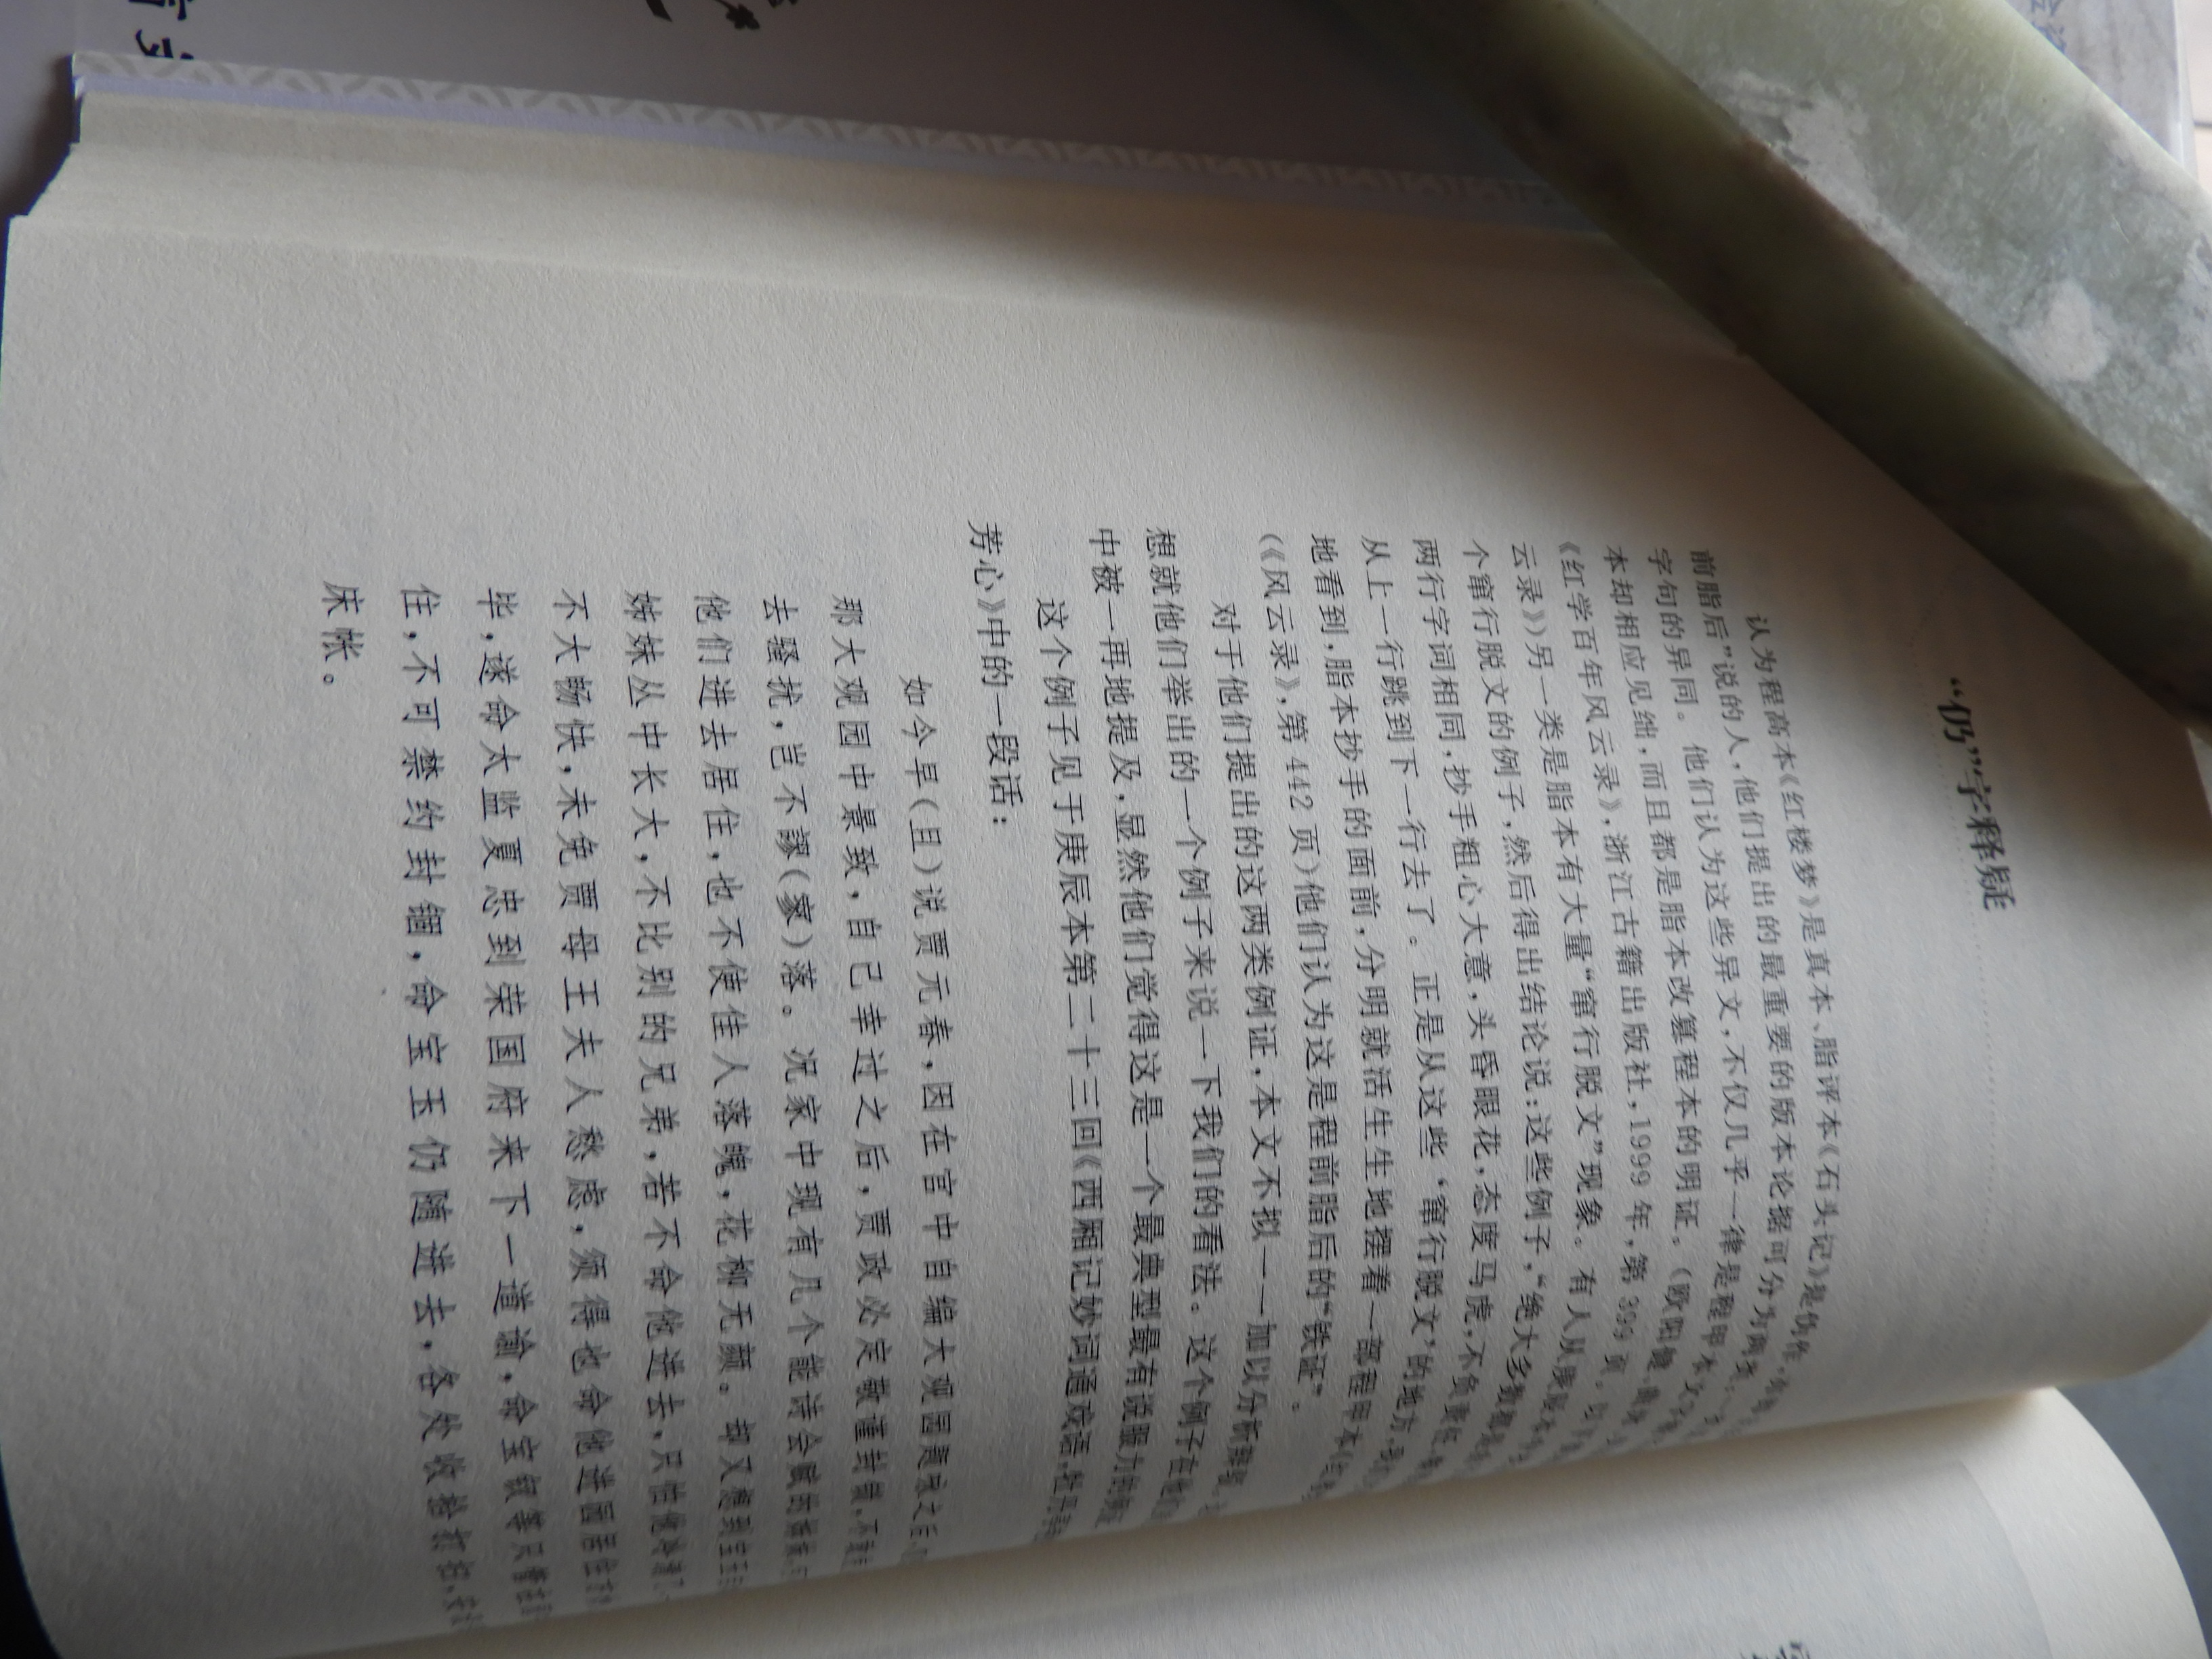 “仍”字释疑
认为程高本《红楼梦》是真本、脂评本《石头记》是伪作
前脂后”说的人，他们提出的最重要的版本论据可分为两类：一
字句的异同。他们认为这些异文，不仅几乎一律是程甲本
本却相应见绌，而且都是脂本改篡程本的明证。（欧阳健
《红学百年风云录》，浙江古籍出版社，1999 年，第 399 页。
云录》）另一类是脂本有大量“窜行脱文”现象。有人从
个窜行脱文的例子，然后得出结论说：这些例子，“绝大多数
两行字词相同，抄手粗心大意，头昏眼花，态度马虎，不负责任
从上一行跳到下一行去了。正是从这些‘窜行脱文’的地方
地看到，脂本抄手的面前，分明就活生生地摆着一部程甲本
（《风云录》，第 442 页）他们认为这是程前脂后的“铁证”。
对于他们提出的这两类例证，本文不拟一一加以分析
想就他们举出的一个例子来说一下我们的看法。这个例子在他们
中被一再地提及，显然他们觉得这是一个最典型最有说服力的
这个例子见于庚辰本第二十三回《西厢记妙词通戏语，牡丹亭
芳心》中的一段话：
如今早（且）说贾元春，因在宫中自编大观园题咏之后
那大观园中景致，自己幸过之后，贾政必定敬谨封锁，不
去骚扰，岂不寥（寥）落。况家中现有几个能诗会赋的姊妹
他们进去居住，也不使佳人落魄，花柳无颜。却又想到宝玉
姊妹丛中长大，不比别的兄弟，若不命他进去，只怕他冷清了
不大畅快，未免贾母王夫人愁虑，须得也命他进园居住
毕，遂命太监夏忠到荣国府来下一道谕，命宝钗等只管在
住，不可禁约封锢，命宝玉仍随进去，各处收拾
床帐。